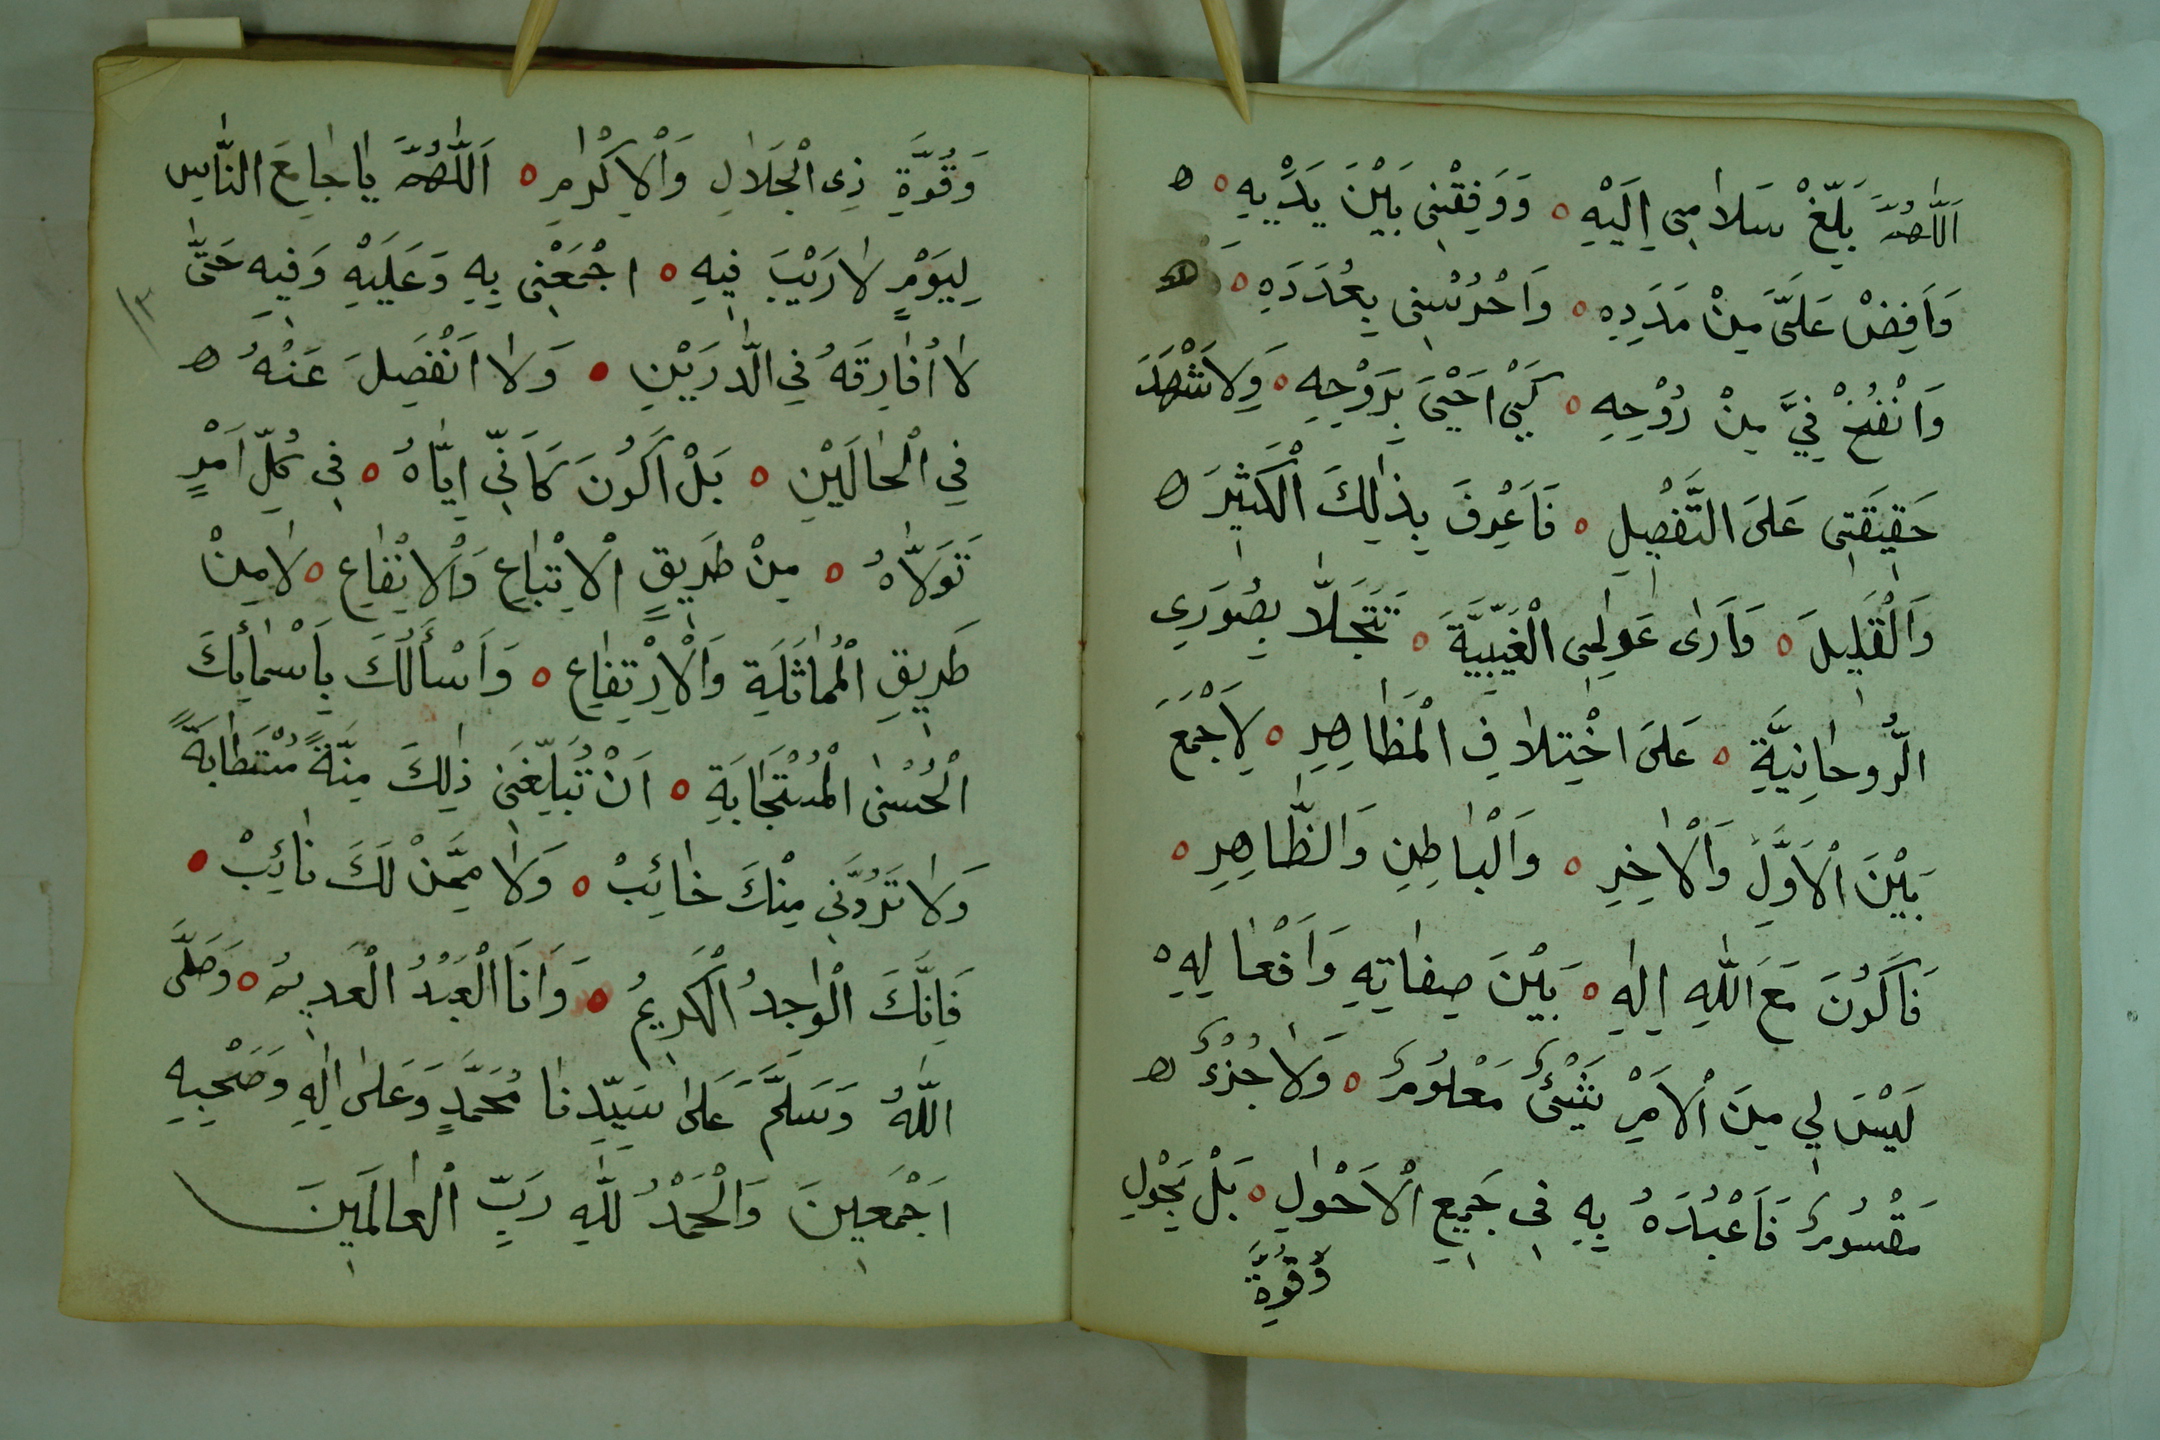 اَللّٰهُمَّ بَلِّغْ سَلَامِى اِلَيْهِ ه وَوَفِقْنِى بَيْنَ يَدَيْهِ ه ه
وَاَفِضْ عَلَىَّ مِنْ مَدَدِهِ ه وَاحْرُسْنِى بِعُدَدَهِ ه
وَانْفُخْ فِيَّ مِنْ رُوْحِهِ ه كَىْ اَحْيَىٰ بِرَوْحِهِ ه وَلِاَشْهَدَ
حَقِيقَتِى عَلَى التَّفْصِيلِ ه فَاَعْرِفَ بِذٰلِكَ الْكَثِيْرَ ه
وَالْقَلِيلَ ه وَاَرٰى عَوٰلِمِى الْغَيْبِيَّةَ ه تَتَجَلّٰا بِصُوَرِي
الرُّوحٰانِيَّةِ ه عَلَى اخْتِلٰافِ الْمَظَاهِرِ ه لِاَجْمَعَ
بَيْنَ الْاَوَّلِ وَالْاٰخِرِ ه وَالْبٰاطِنِ وَالظّٰاهِرِ ه
فَاَكُونَ مَعَ اللّٰهِ اِلٰهِ ه بَيْنَ صِفٰاتِهِ وَاَفْعٰالِهِ ه
لَيْسَ لِي مِنَ الْاَمْرِ شَيْئٌ مَعْلُومٌ ه وَلٰا جُزْءٌ ه
مَقْسُومٌ فَاَعْبُدَهُ بِهِ فِى جَمِيعِ الْاَحْوٰلِ ه بَلْ بِحَوْلِ
وَّقُوَّةِ
وَقُوَّةِ ذِى الْجَلَالِ وَالْاِكْرٰمِ ه اَللّٰهُمَّ يٰا جٰامِعَ النّٰاسِ
لِيَوْمٍ لٰا رَيْبَ فِيهِ ه اجْمَعْنِى بِهِ وَعَلَيْهِ وَفِيهِ حَتّٰى
لٰا اُفٰارِقَهُ فِي الدّٰرَيْنِ ه وَلٰا اَنْفَصِلَ عَنْهُ ه
فِي الْحٰالَيْنِ ه بَلْ اَكُونَ كَاَنِّي اِيّٰاهُ ه فِى كُلِّ اَمْرٍ
تَوَلّٰاهُ ه مِنْ طَرِيقِ الْاِتْبٰاعِ وَالْاِنْفٰاعِ ه لٰا مِنْ
طَرِيقِ الْمُمٰاثَلَةِ وَالْاِرْتِفٰاعِ ه وَاَسْأَلُكَ بِاَسْمٰائِكَ
الْحُسْنٰى الْمُسْتَجَابَةِ ه اَنْ تُبَلِّغَنِى ذٰلِكَ مِنَّةً مُسْتَطٰابَةً
وَلٰا تَرُدَّنِي مِنْكَ خٰائِبْ ه وَلٰا مِمَّنْ لَكَ نٰائِبْ ه
فَاِنَّكَ الْوٰاجِدُ الْكَرِيمُ ه وَاَنَا الْعَبْدُ الْعَدِيمُ ه وَصَلَّى
اللّٰهُ وَسَلَّمَ عَلٰى سَيِّدِنٰا مُحَمَّدٍ وَعَلٰى اٰلِهِ وَصَحْبِهِ
اَجْمَعِينَ وَالْحَمْدُ لِلّٰهِ رَبِّ الْعٰالَمِينَ